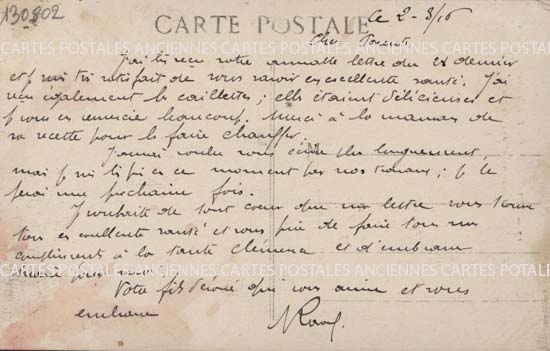 130802
CARTE POSTALE
le 2-3/16
Chers Parents
J'ai bien reçu votre aimable lettre du 28 dernier
et suis très satisfait de vous savoir en excellente santé. J'ai
reçu également les caillettes ; elles étaient délicieuses et
je vous en remercie beaucoup. Merci à la maman de
sa recette pour les faire chauffer.
J'aurais voulu vous écrire plus longuement,
mais je suis pris en ce moment par nos travaux ; je le
ferai une prochaine fois.
Je souhaite de tout coeur que ma lettre vous trouve
tous en excellente santé et vous prie de faire tous mes
compliments à la tante Clémence et d'embrasser
pour
CARTES POSTALES ANCIENNES CARTES POSTALES ANCIENNES CARTES POTALES
Votre fils dévoué qui vous aime et vous
embrasse